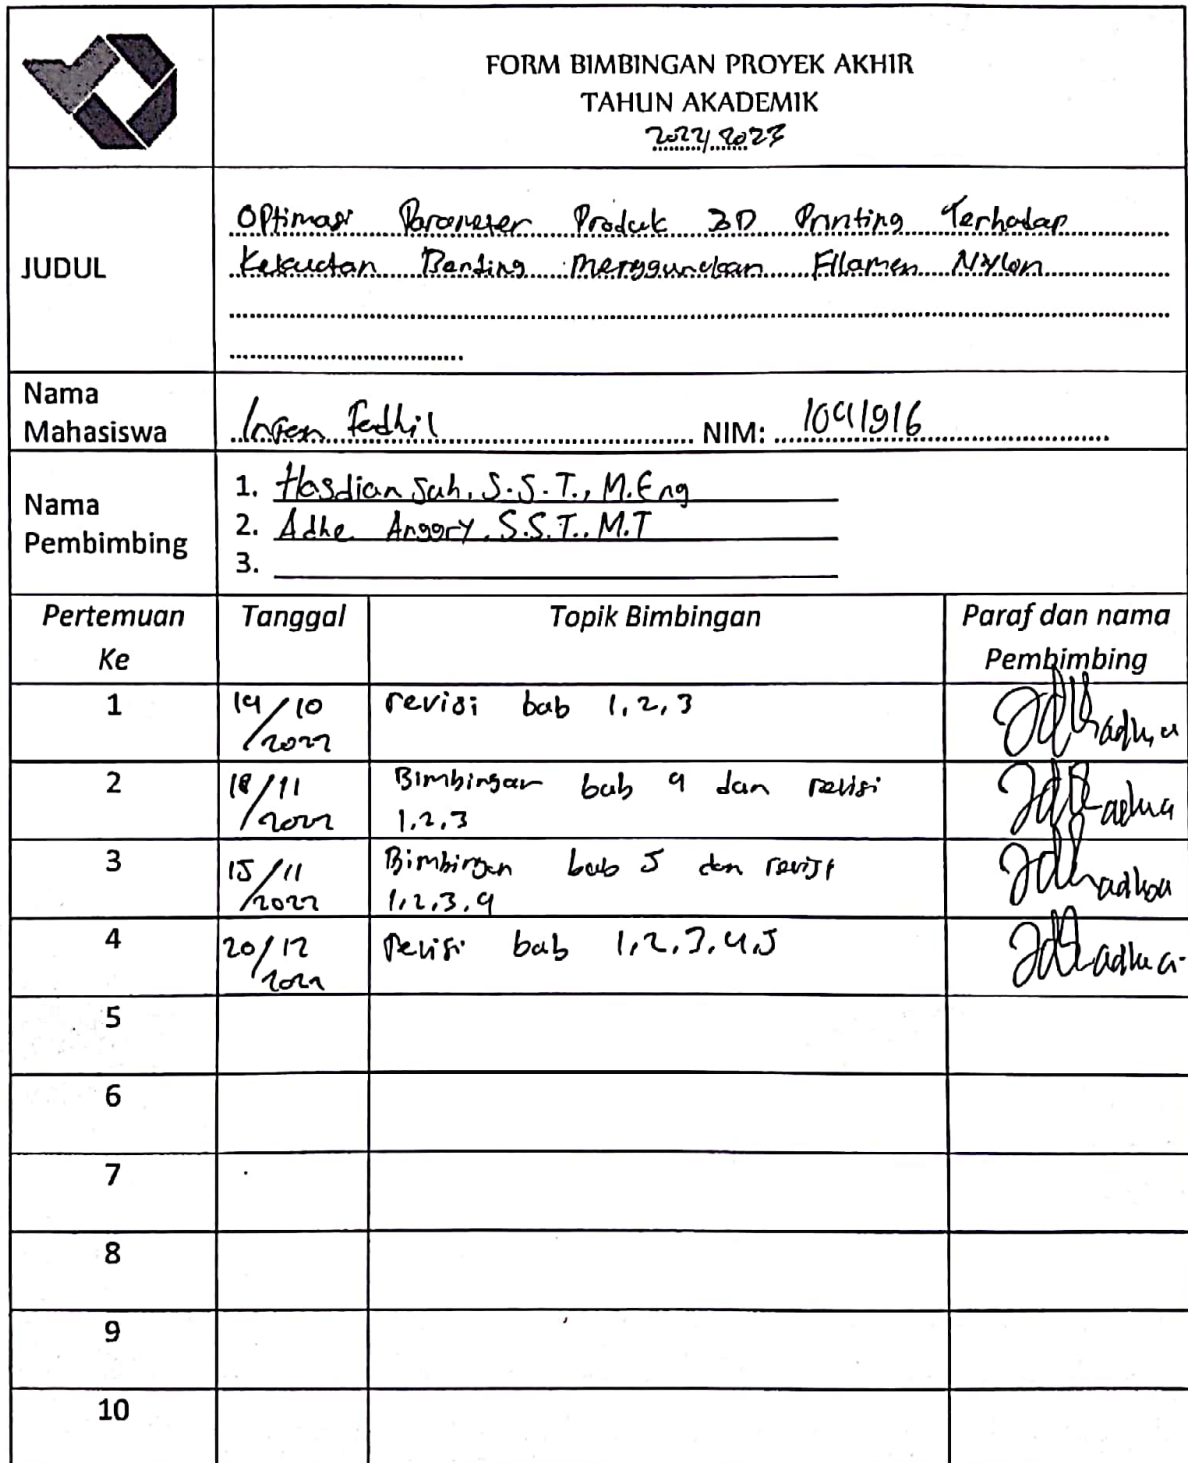 FORM BIMBINGAN PROYEK AKHIR
TAHUN AKADEMIK
2022/2023
JUDUL
Optimasi Parameter Produk 3D Printing Terhadap
Kekuatan Banding Menggunakan Filamen Nylon
Nama
Mahasiswa
Fadhil NIM: 1041916
Nama
Pembimbing
1. Hasdiansah, S.S.T., M.Eng
2. Adhe Anggry, S.S.T., M.T
3.
Pertemuan
Ke
Tanggal
Topik Bimbingan
Paraf dan nama
Pembimbing
1
14/10
/2022
revisi bab 1,2,3
2
18/11
/2022
Bimbingan bab 4 dan revisi
1,2,3
3
15/11
/2022
Bimbingan bab 5 dan revisi
1,2,3,4
4
20/12
/2022
revisi bab 1,2,3,4,5
5
6
7
8
9
10